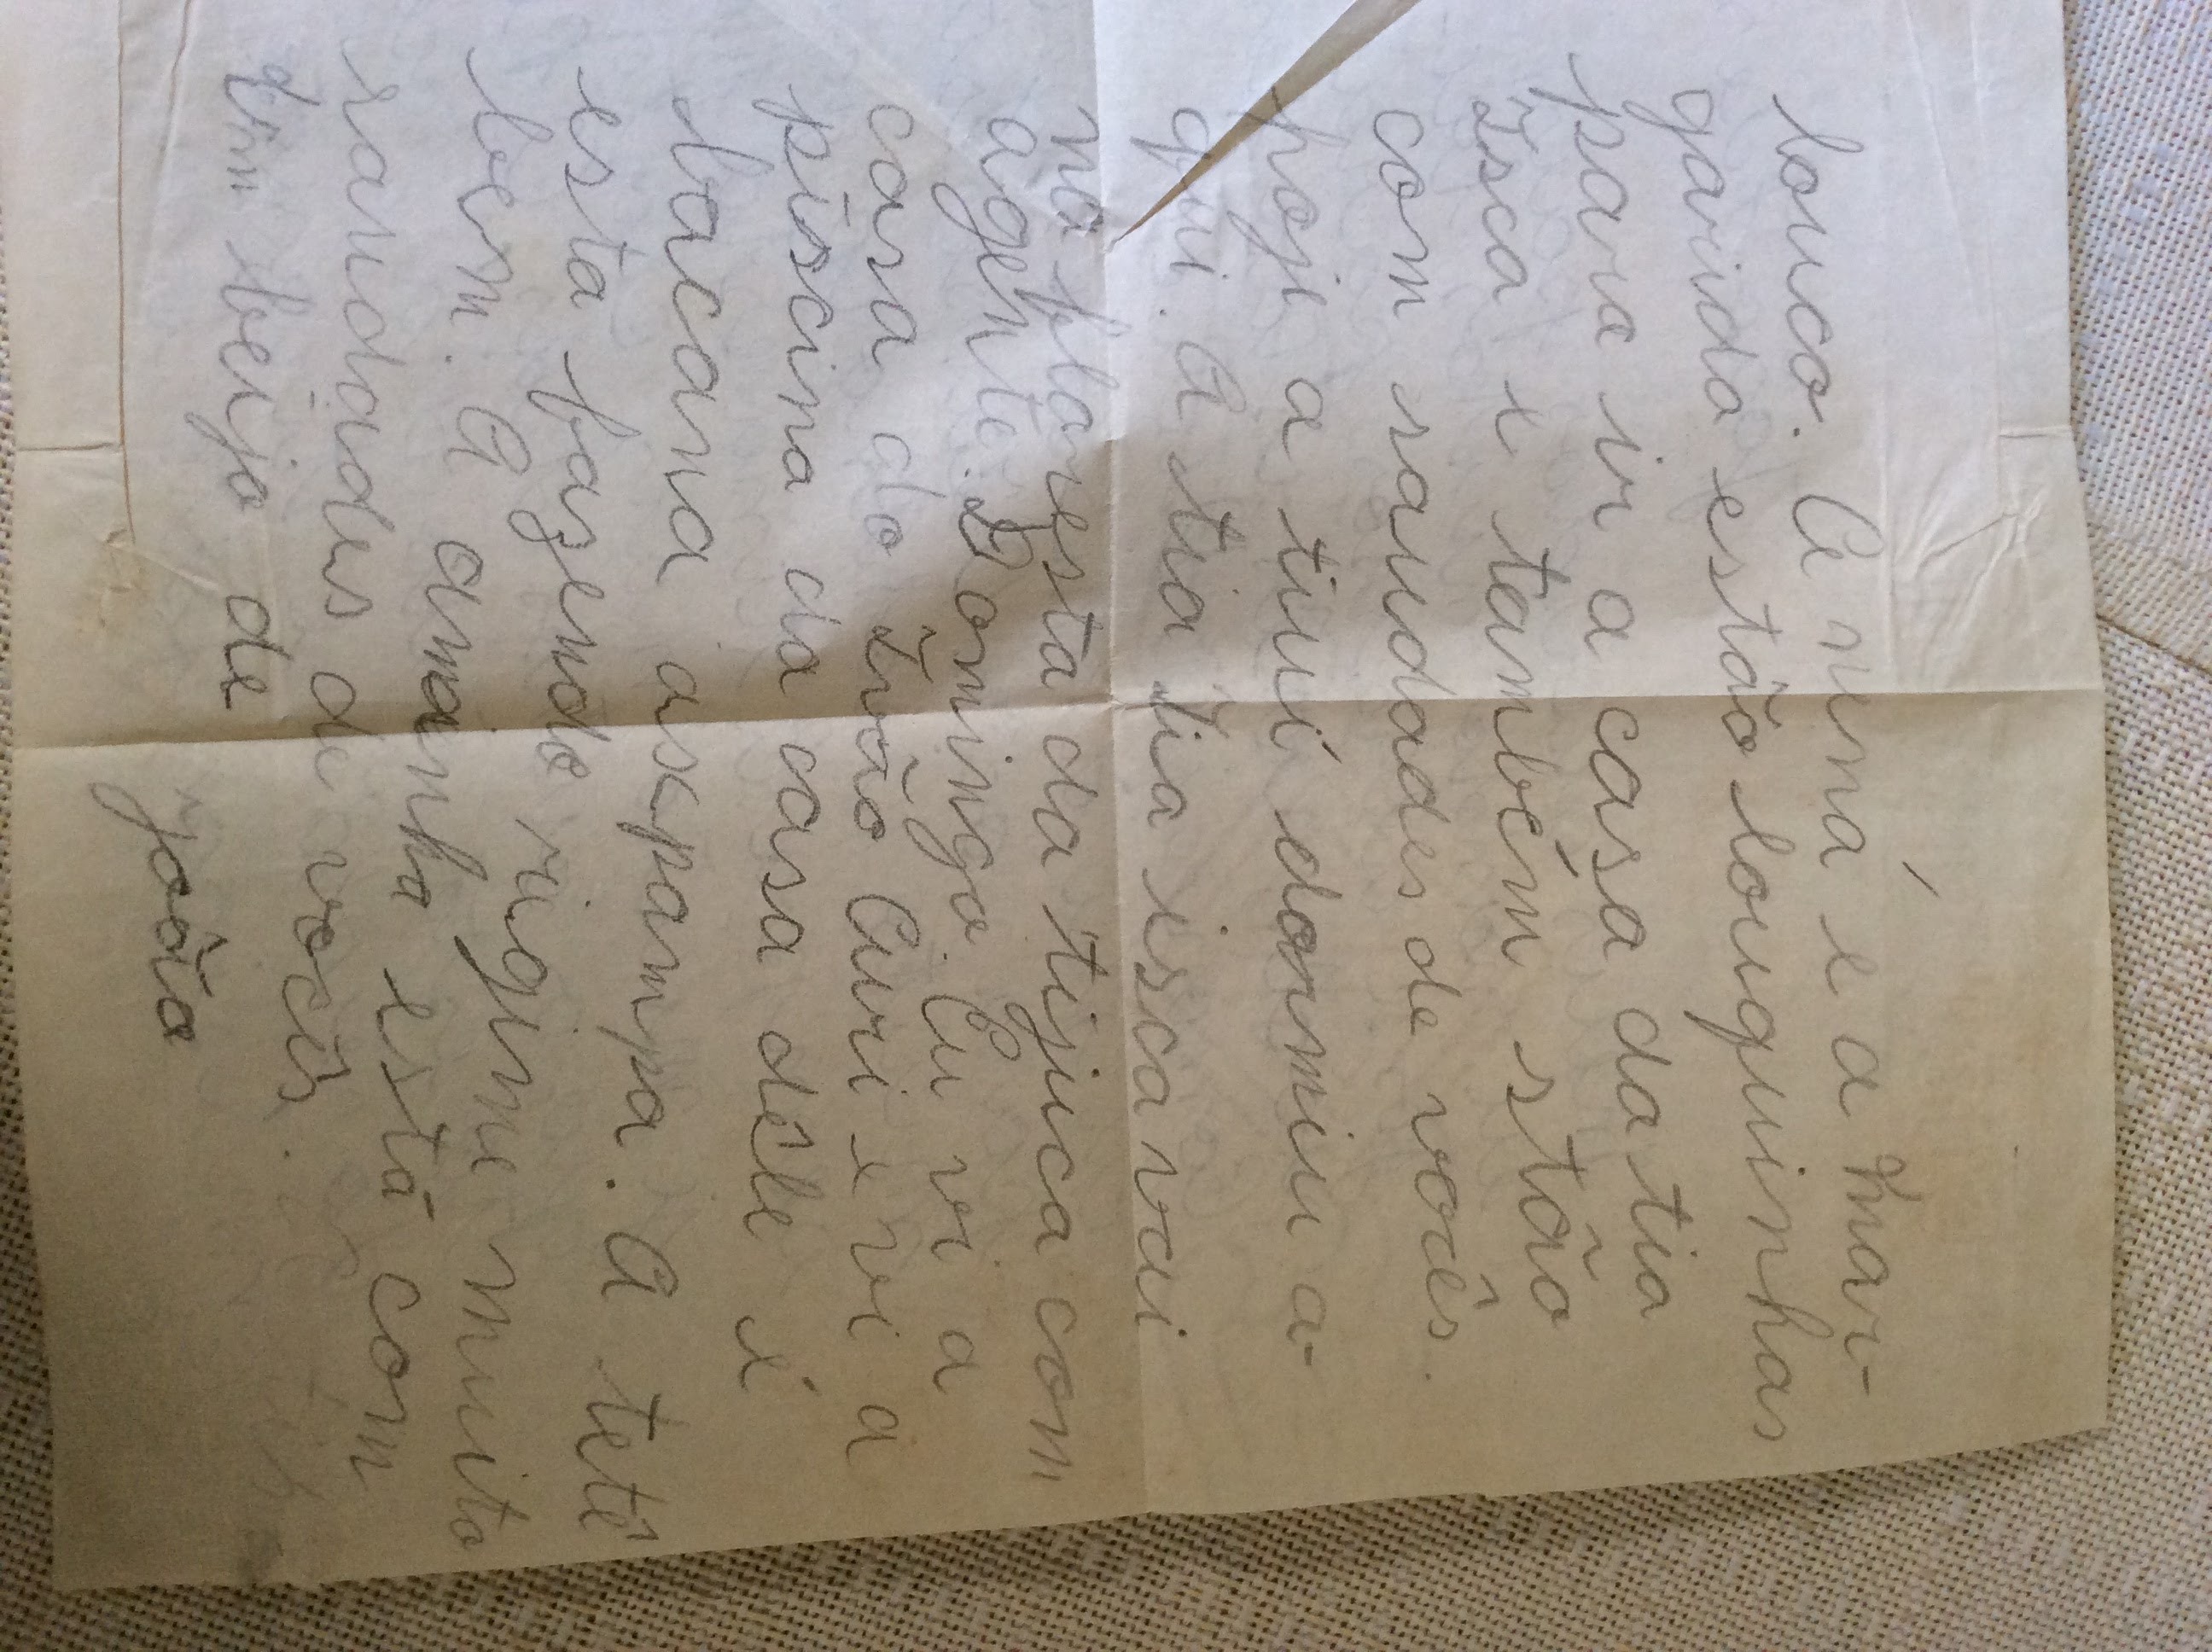 louco. A nená e a mar-
garida estão louquinhas
para ir a casa da tia
Isca e também stão
com saudades de vocês.
hoje a tiuí dormiu a-
qui. A tia Tia isca vai
na floresta da tijuca com
agente. Domingo. Eu vi a
casa do Ivão Curi e vi a
piscina da casa dele é
bacana asepampa. A tetê
esta fazendo rigime muito
bem. A amanha está com
saudades de vocês.
Um beijo de
joão